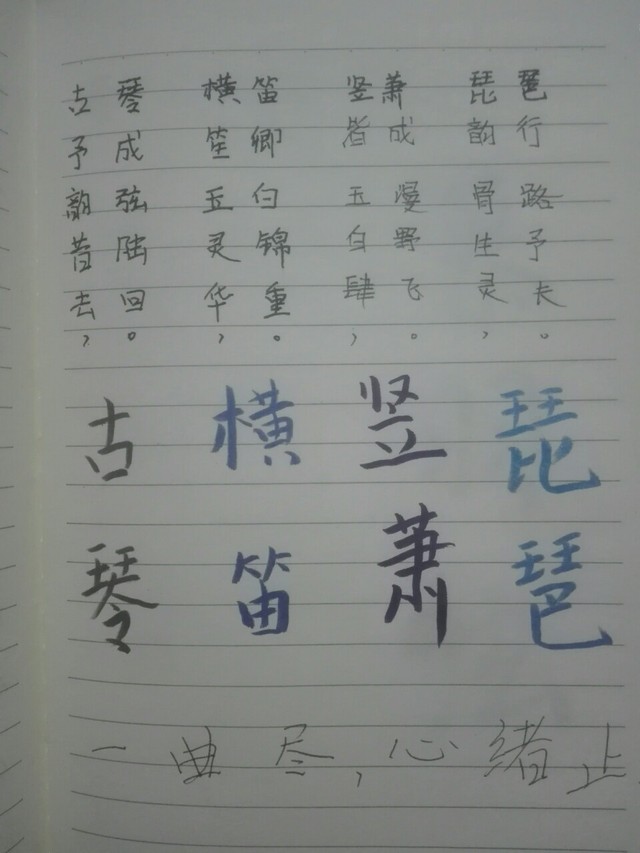 古予韵昔去，
琴成弦陆回。
横笙玉灵华，
笛卿白锦重。
竖者玉白肆，
萧成漫野飞。
琵韵骨生灵，
琶行路予夫。
古琴
横笛
竖萧
琵琶
一曲尽，心绪止